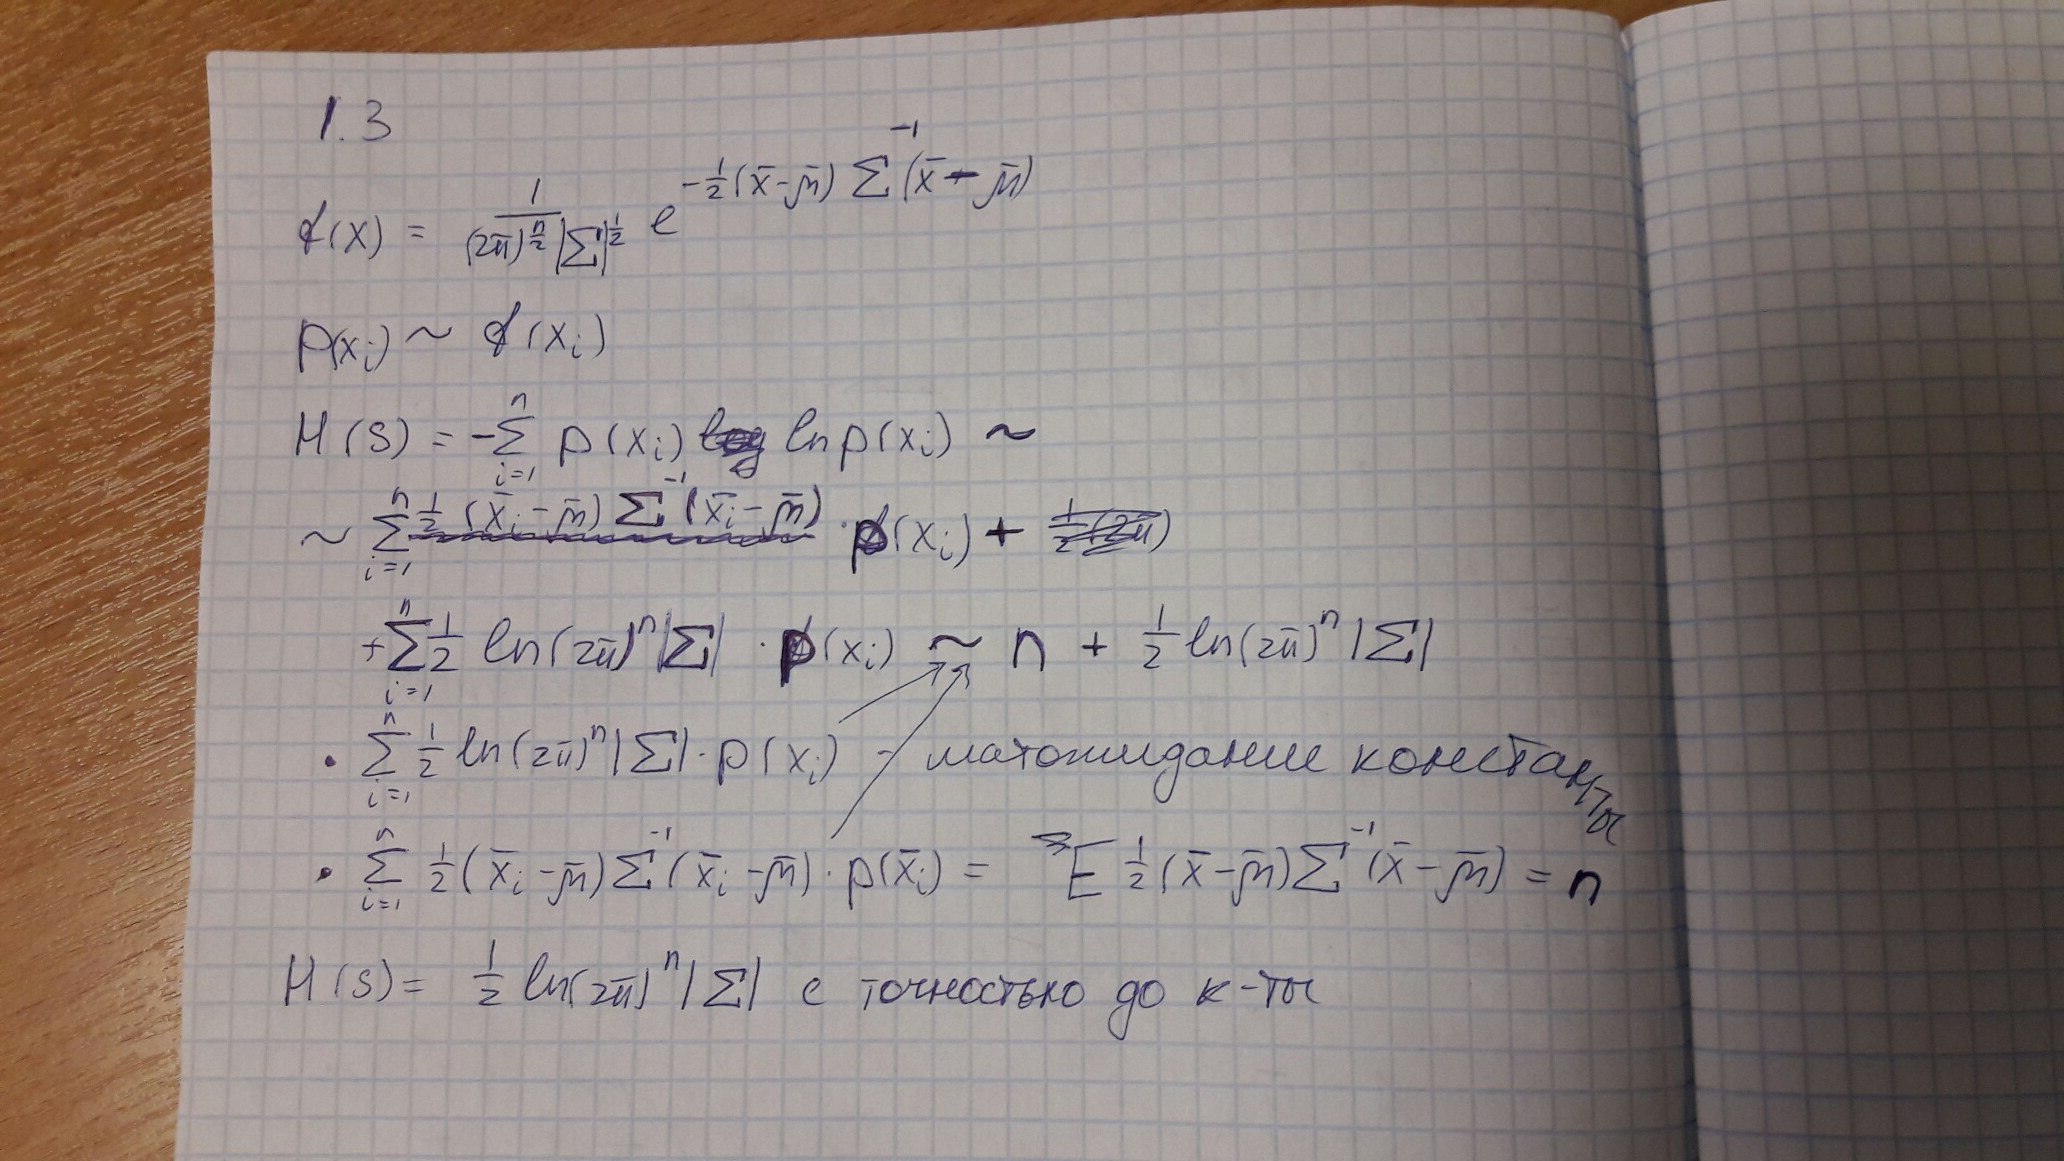 1.3
f(x) = 1 / ((2π)^(n/2) |Σ|^(1/2)) e^(-1/2 (x̄-μ̄) Σ^(-1) (x̄-μ̄))
p(x_i) ~ f(x_i)
H(S) = -Σ_{i=1}^{n} p(x_i) ln p(x_i) ~
~ Σ_{i=1}^{n} 1/2 (x̄_i-μ̄) Σ^(-1) (x̄_i-μ̄) · p(x_i) +
+ Σ_{i=1}^{n} 1/2 ln(2π)^n |Σ| · p(x_i) ~ n + 1/2 ln(2π)^n |Σ|
• Σ_{i=1}^{n} 1/2 ln(2π)^n |Σ| · p(x_i) - матожидание константы
• Σ_{i=1}^{n} 1/2 (x̄_i-μ̄) Σ^(-1) (x̄_i-μ̄) · p(x̄_i) = E 1/2 (x̄-μ̄) Σ^(-1) (x̄-μ̄) = n
H(S) = 1/2 ln(2π)^n |Σ| с точностью до к-ты